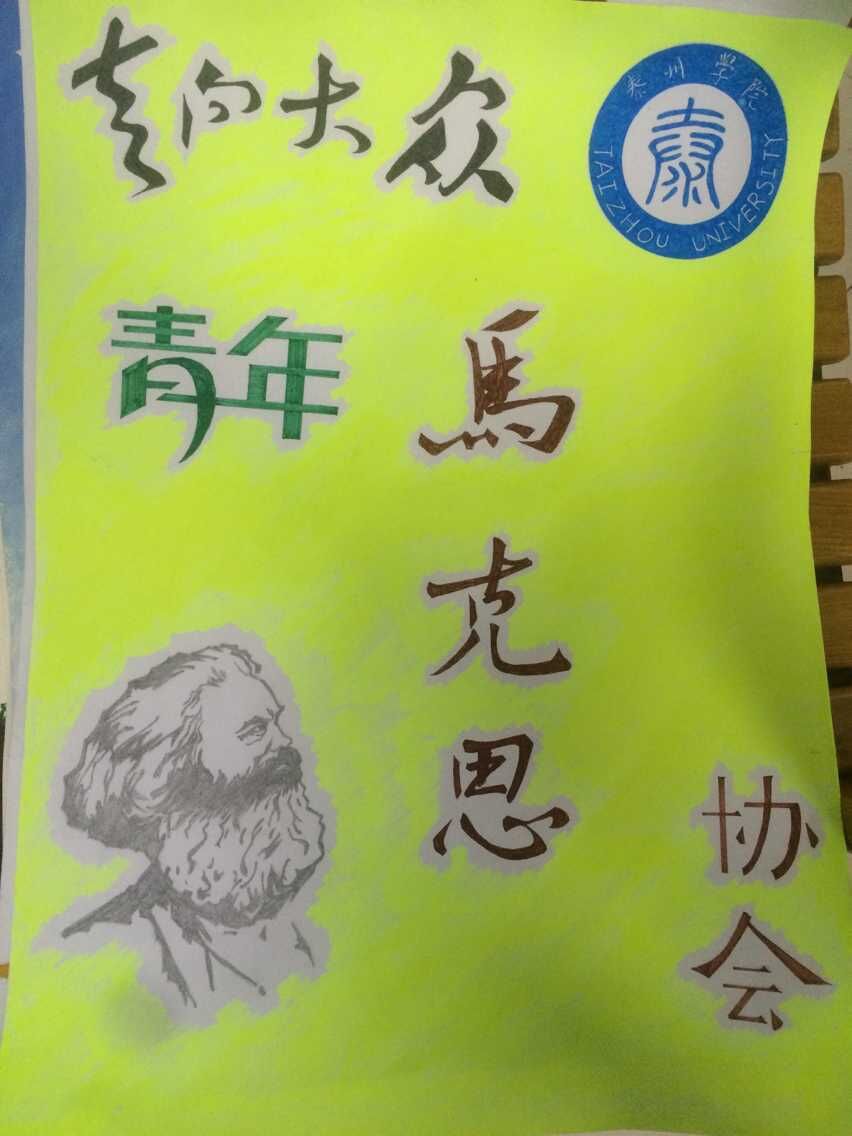 走向大众
泰州学院
泰
TAIZHOU UNIVERSITY
青年
馬克思
协会